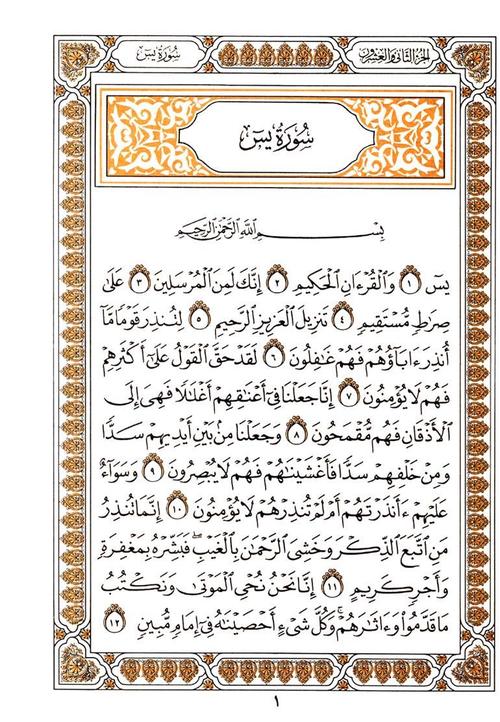 الجزء الثاني والعشرون
سُورَةُ يسٓ
سُورَةُ يسٓ
بِسْمِ اللَّهِ الرَّحْمَٰنِ الرَّحِيمِ
يسٓ ١ وَالْقُرْءَانِ الْحَكِيمِ ٢ إِنَّكَ لَمِنَ الْمُرْسَلِينَ ٣ عَلَىٰ
صِرَٰطٍ مُّسْتَقِيمٍ ٤ تَنزِيلَ الْعَزِيزِ الرَّحِيمِ ٥ لِتُنذِرَ قَوْمًا مَّآ
أُنذِرَ ءَابَآؤُهُمْ فَهُمْ غَٰفِلُونَ ٦ لَقَدْ حَقَّ الْقَوْلُ عَلَىٰٓ أَكْثَرِهِمْ
فَهُمْ لَا يُؤْمِنُونَ ٧ إِنَّا جَعَلْنَا فِىٓ أَعْنَٰقِهِمْ أَغْلَٰلًا فَهِىَ إِلَى
الْأَذْقَانِ فَهُم مُّقْمَحُونَ ٨ وَجَعَلْنَا مِنۢ بَيْنِ أَيْدِيهِمْ سَدًّا
وَمِنْ خَلْفِهِمْ سَدًّا فَأَغْشَيْنَٰهُمْ فَهُمْ لَا يُبْصِرُونَ ٩ وَسَوَآءٌ
عَلَيْهِمْ ءَأَنذَرْتَهُمْ أَمْ لَمْ تُنذِرْهُمْ لَا يُؤْمِنُونَ ١٠ إِنَّمَا تُنذِرُ
مَنِ اتَّبَعَ الذِّكْرَ وَخَشِىَ الرَّحْمَٰنَ بِالْغَيْبِ ۖ فَبَشِّرْهُ بِمَغْفِرَةٍ
وَأَجْرٍ كَرِيمٍ ١١ إِنَّا نَحْنُ نُحْىِ الْمَوْتَىٰ وَنَكْتُبُ
مَا قَدَّمُوا۟ وَءَاثَٰرَهُمْ ۚ وَكُلَّ شَىْءٍ أَحْصَيْنَٰهُ فِىٓ إِمَامٍ مُّبِينٍ ١٢
١